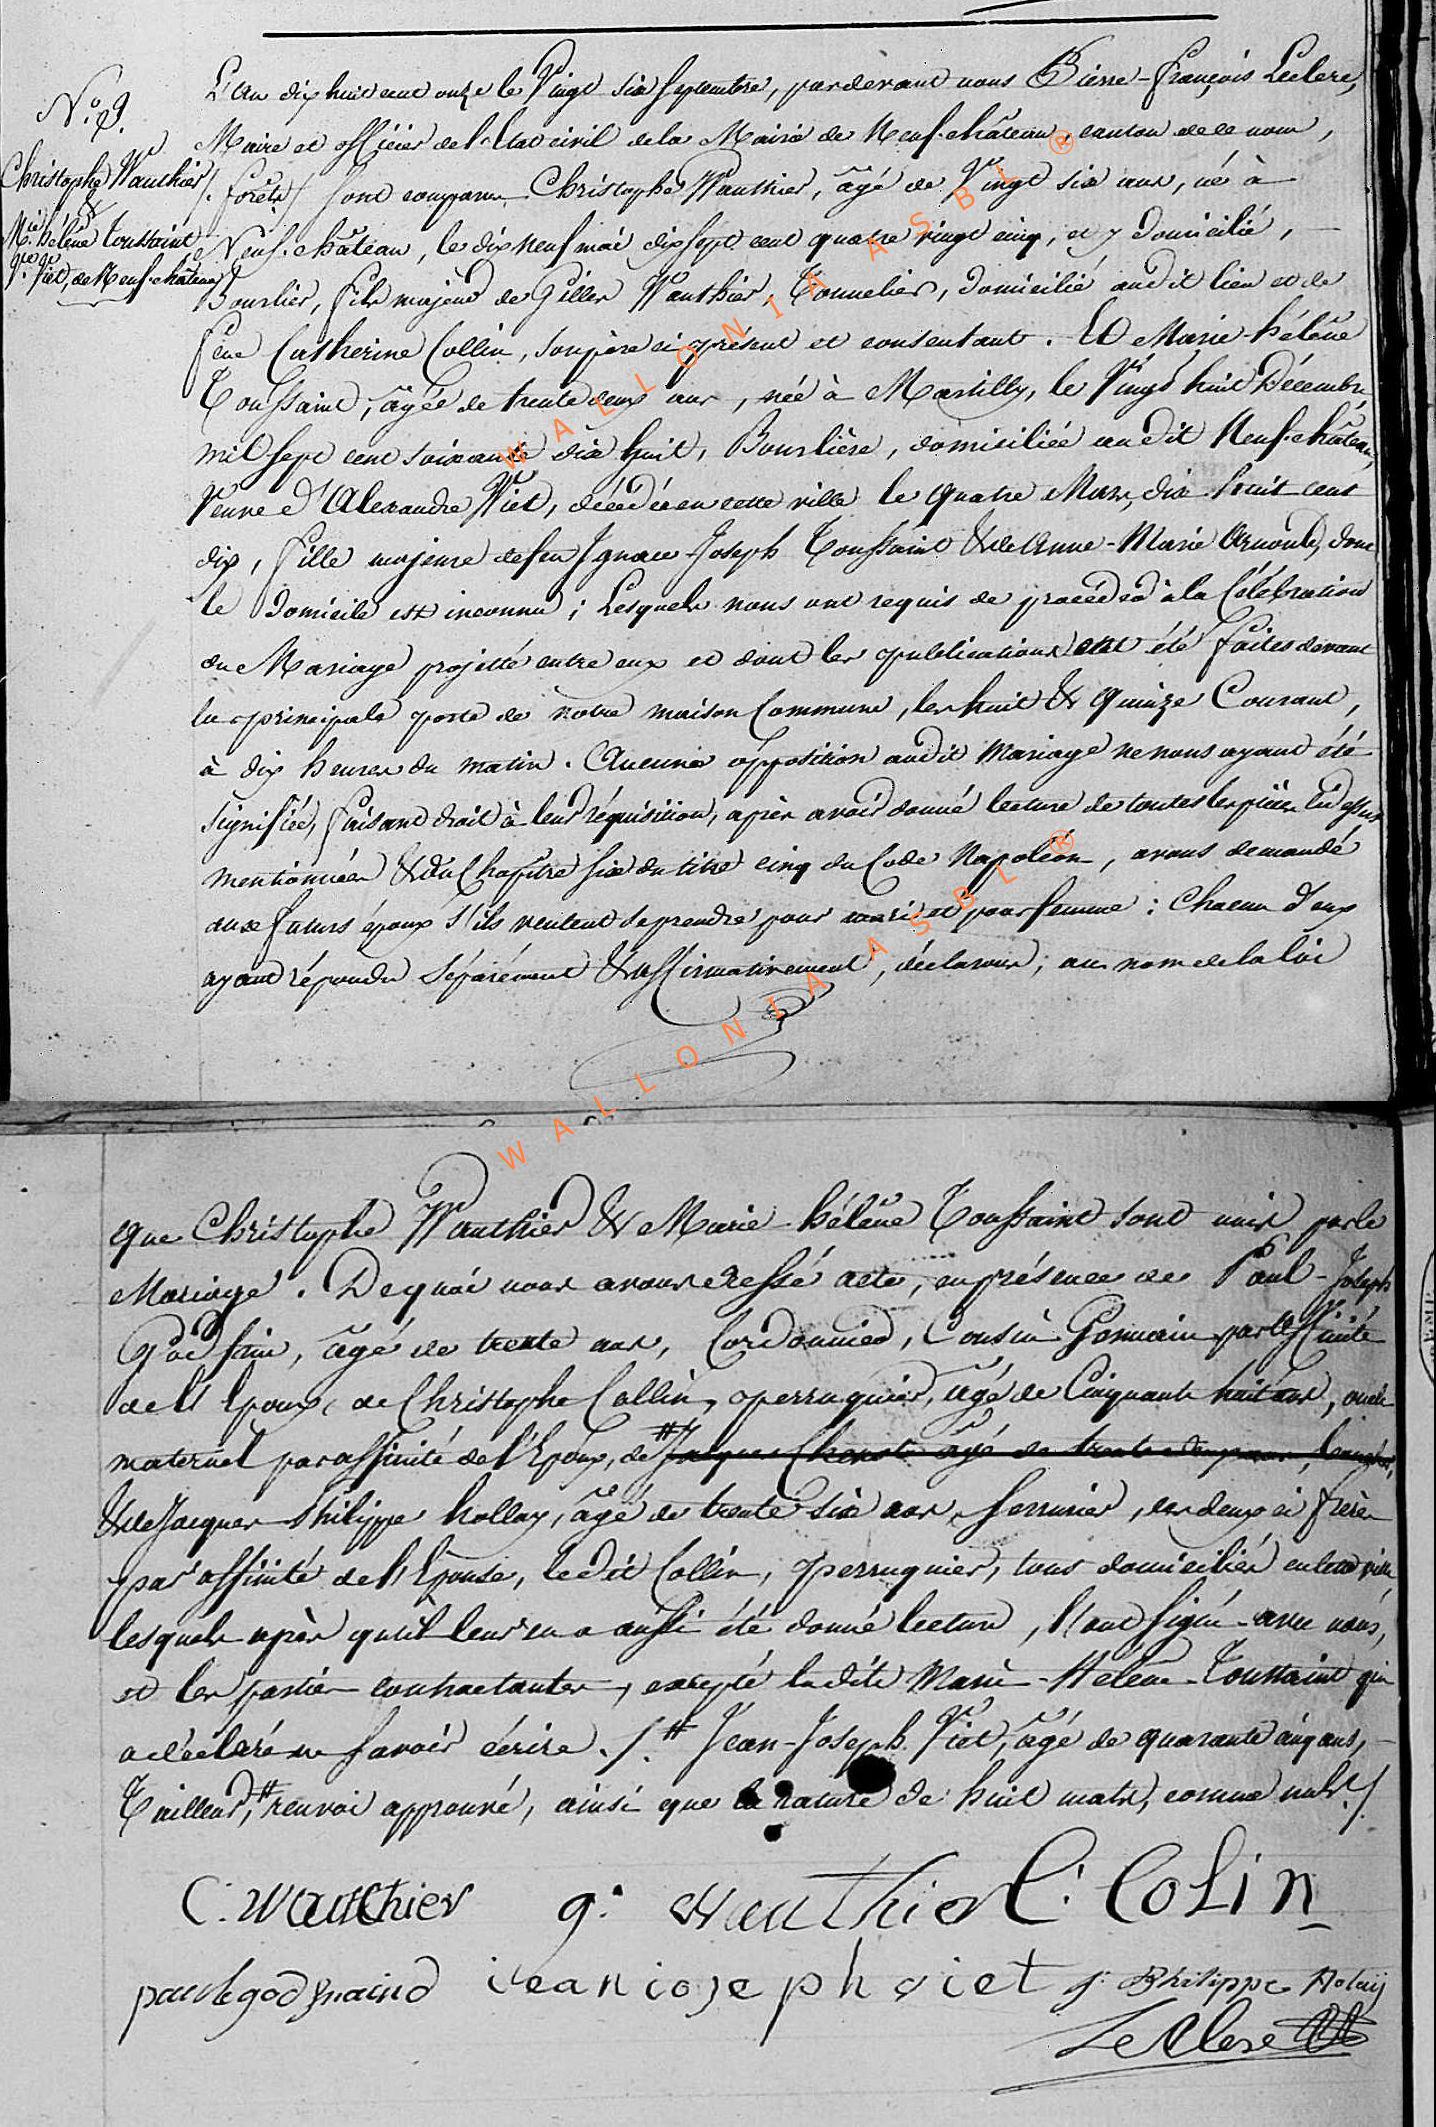 N.° 9.
Christophe Wauthier
&
M.ie hélène Toussaint
V.e Viet, de Neuf-château
L'An dix huit cent onze le Vingt six Septembre, pardevant nous Pierre-françois Leclere,
Maire et officier de l'Etat civil de la Mairie de Neuf-château, canton de ce nom,
/forêts/ sont comparus Christophe Wauthier, âgé de Vingt six ans, né à
Neuf-château, le dix neuf mai dix sept cent quatre vingt cinq, et y domicilié,
Bourlier, fils majeur de Gilles Wauthier, Tonnelier, domicilié audit lieu et de
feue Catherine Collin, son père ici présent et consentant. Et Marie hélène
Toussaint, âgée de trente deux ans, née à Martilly, le Vingt huit Décembre
mil sept cent soixante dix huit, Bourlière, domiciliée audit Neuf-château,
Veuve d'Alexandre Viet, décédé en cette ville le quatre Mars, dix huit cent
dix, fille majeure de feu Ignace-Joseph Toussaint & de Anne-Marie Arnould, dont
le domicile est inconnu ; Lesquels nous ont requis de procéder à la Célébration
du Mariage projetté entre eux et dont les publications ont été faites devant
la principale porte de notre maison Commune, les huit & quinze Courant,
à dix heures du matin. Aucune opposition audit Mariage ne nous ayant été
signifiée, faisant droit à leur réquisition, après avoir donné lecture de toutes les pièces ci dessus
mentionnées & du Chapitre six du titre cinq du Code Napoléon, avons demandé
aux futurs époux s'ils veulent se prendre pour mari et pour femme : Chacun d'eux
ayant répondu séparément & affirmativement, déclarons, au nom de la loi
que Christophe Wauthier & Marie-hélène Toussaint sont unis par le
Mariage. De quoi nous avons dressé acte, en présence de Paul-Joseph
Godfrin, âgé de trente ans, Cordonnier, Cousin Germain par affinité
de l'Epoux, de Christophe Collin, perruquier, âgé de Cinquante huit ans, oncle
maternel par affinité de l'Epoux, de # Jacques âgé de trente
& de Jacques Philippe hollay, âgé de trente six ans, serrurier, les deux ci frères
par affinité de l'Epouse, ledit Collin, perruquier, tous domiciliés en cette ville
lesquels après qu'il leur en a aussi été donné lecture, l'ont signé avec nous,
et les parties contractantes, excepté ladite Marie-Hélène Toussaint qui
a déclaré ne savoir écrire. /. # Jean-Joseph Viet, âgé de quarante cinq ans,
Tailleur, # renvoi approuvé, ainsi que la rature de huit mots, comme nuls /
C. Wauthier g. Wauthier C. Colin
paul godfraind iean ioseph viet j. Philippe Holaij
Leclere
WALLONIA ASBL ®
WALLONIA ASBL ®